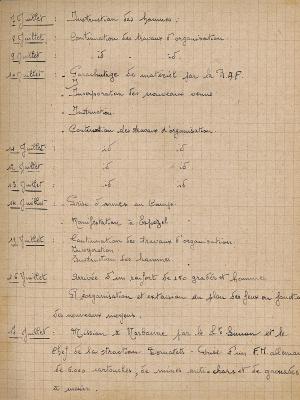 7 Juillet : Instruction des hommes.
8 Juillet : Continuation des travaux d'organisation.
9 Juillet : id id.
10 Juillet : - Parachutage de matériel par la R.A.F.
- Incorporation des nouveaux venus
- Instruction.
- Continuation des travaux d'organisation.
11 Juillet : id id
12 Juillet : id id
13 Juillet : id id
14 Juillet : - Prise d'armes au Camp.
- Manifestation à Espezel
15 Juillet : Continuation des travaux d'organisation.
Incorporation
Instruction des hommes.
16 Juillet : Arrivée d'un renfort de 150 gradés et hommes
Réorganisation et extension du plan des feux en fonction
des nouveaux moyens.
Juillet : Mission à Narbonne par le Lt et le
Chef de la Prise d'un F.M. allemand
de cartouches, de mines anti-chars et de grenades
à main.